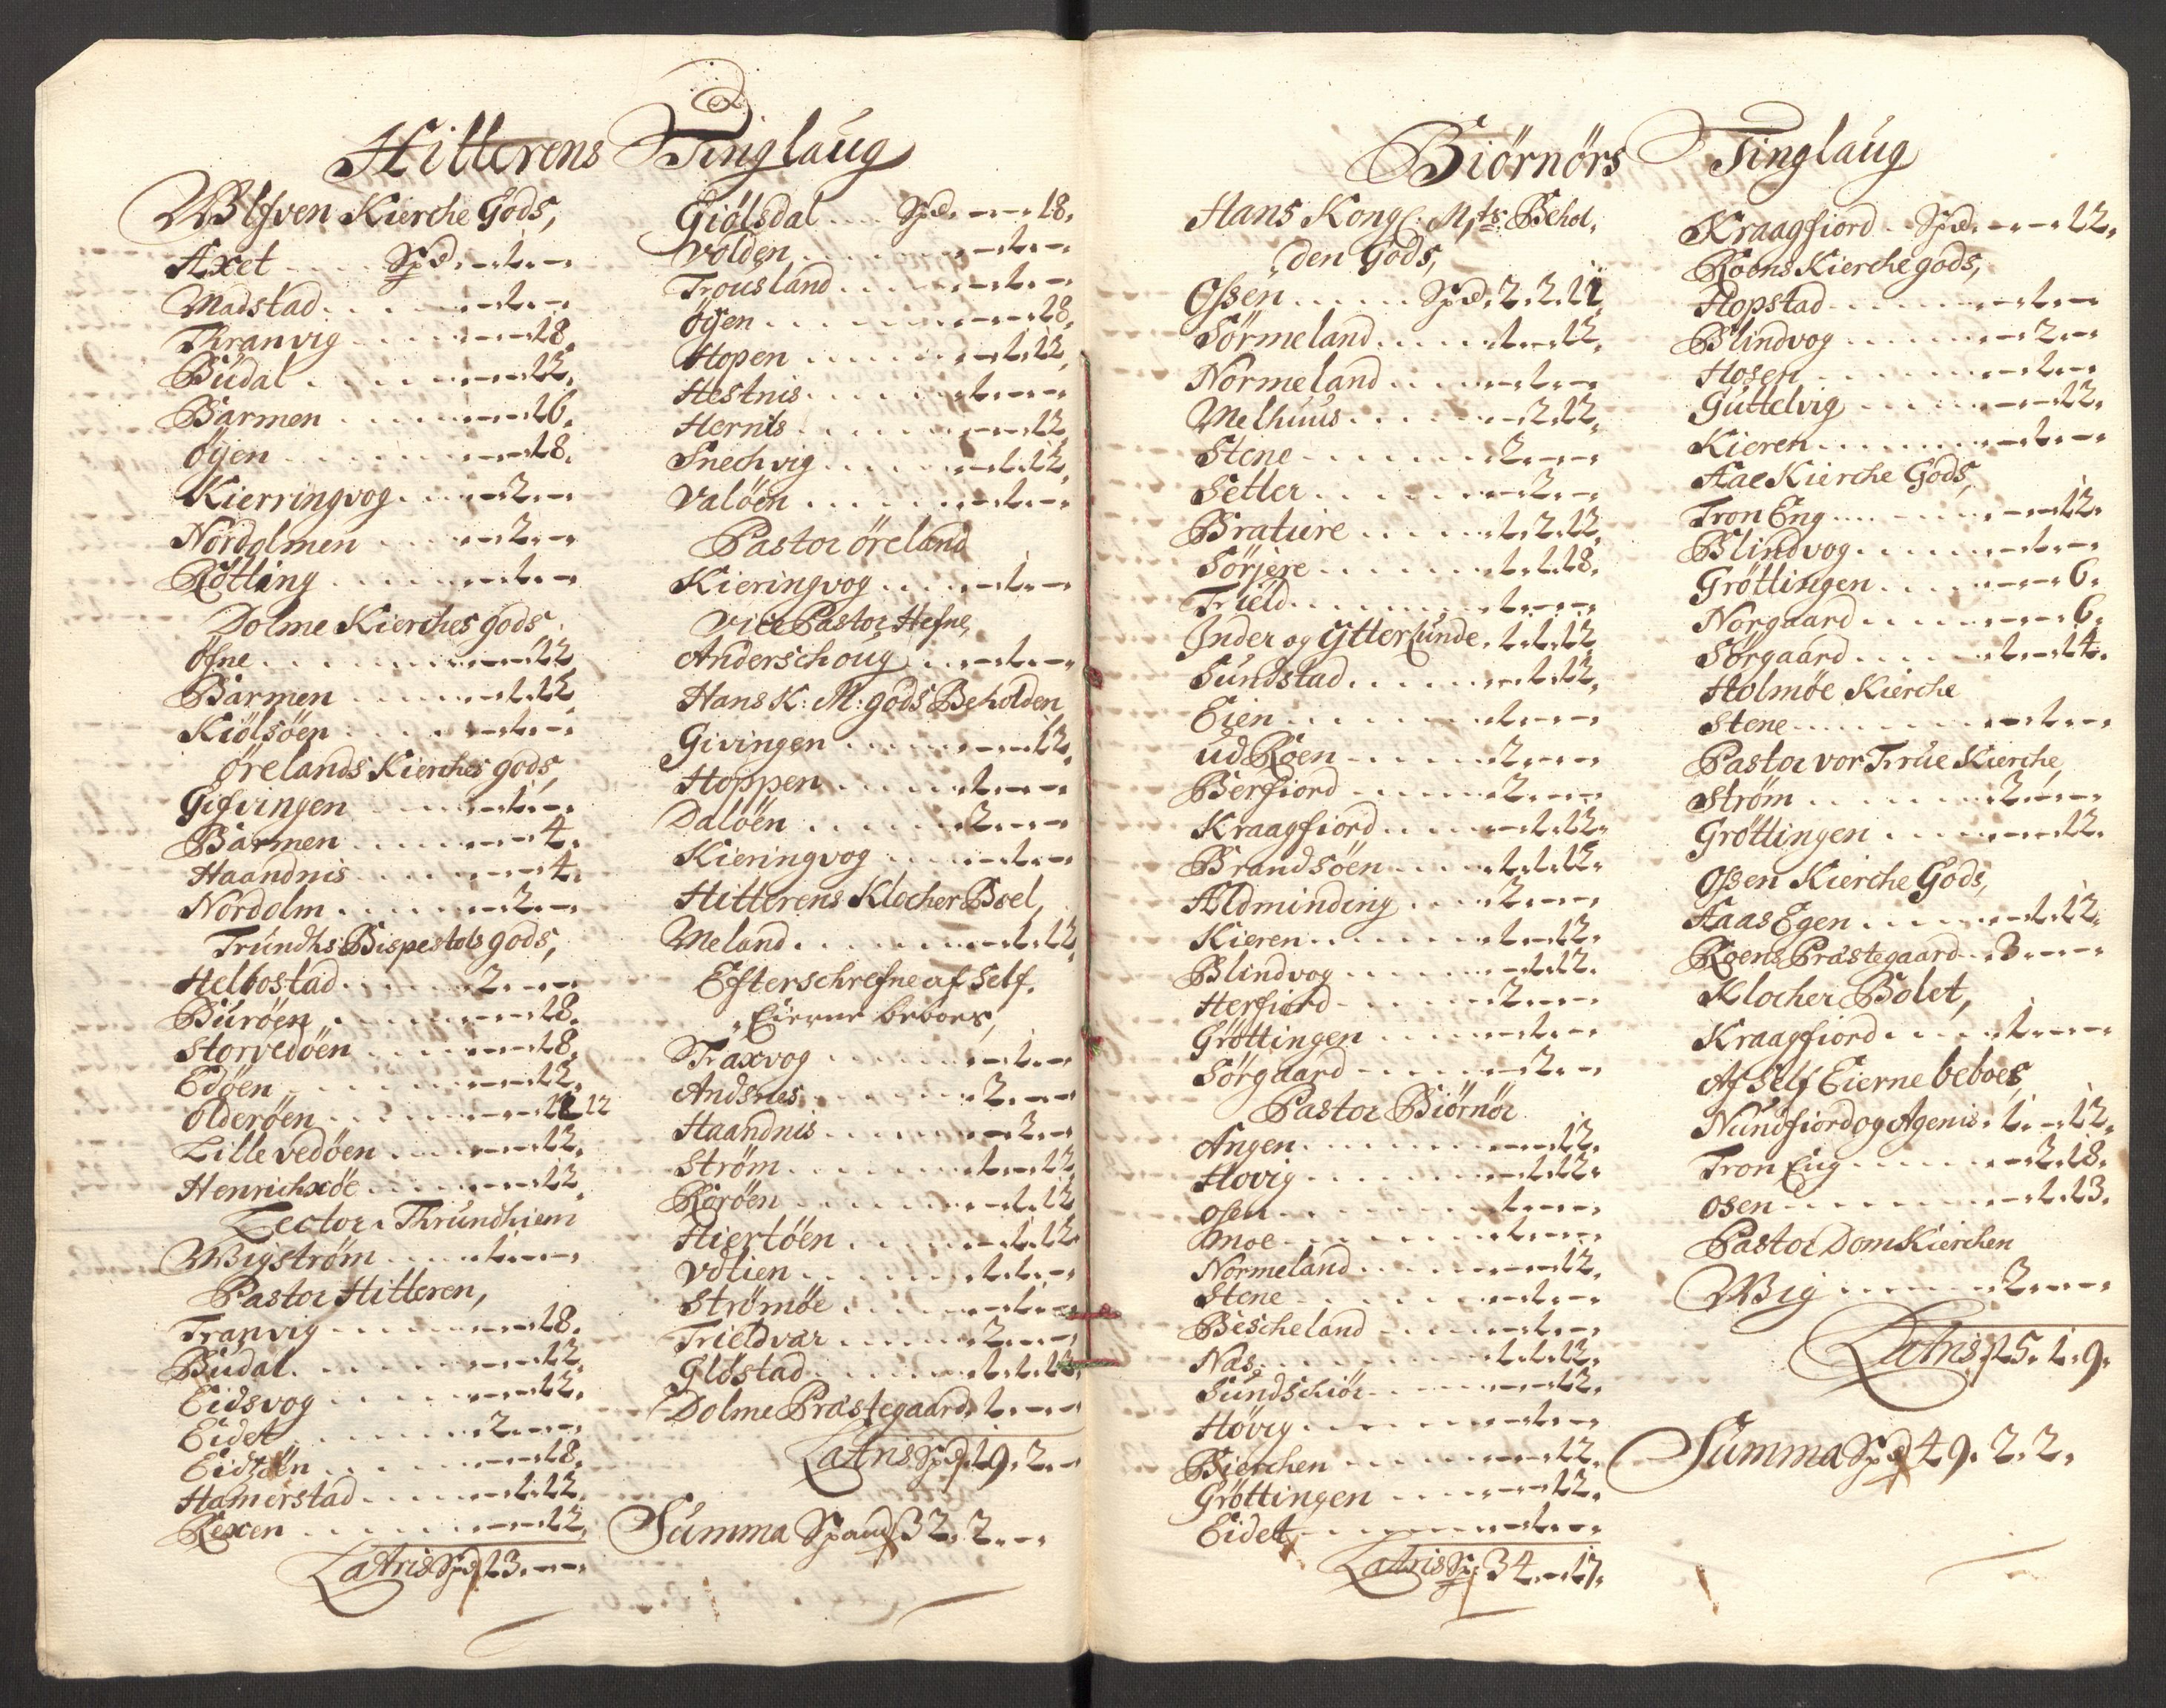 Hitterens Tinglaug
Wlfven Kierche Gods,
Axet . . . . Spd. - 1. -
Madstad . . . . - 1. -
Thranvig . . . . - - 18.
Budal . . . . - - 12.
Barmen . . . . - - 16.
Øyen . . . . - - 18.
Kierringvog . . . - 2. -
Nordolmen . . . - 2. -
Røtting . . . . - 1. -
Dolme Kierches gods
Øfne . . . . - - 12
Barmen . . . . - 1. 12
Kiølsöen . . . . - 1. -
Ørelands Kierches gods,
Gifvingen . . . . - 1. -
Barmen . . . . - - 4.
Haandnis . . . . - - 4.
Nordolm . . . . - 2. -
Trundhs Bispestols gods,
Helbostad . . . . 2. - -
Buröen . . . . - - 18.
Storvedöen . . . . - - 18.
Edöen . . . . - - 12.
Olderöen . . . . - - 12
Lille vedöen . . . . - - 12.
Henrichxöe . . . . - - 12.
Lector i Thrundhiem
Wigstrøm . . . . 1. - -
Pastor Hitteren,
Tranvig . . . . - - 18.
Budal . . . . - - 12.
Eidsvog . . . . - - 12.
Eidet . . . . 2. - -
Eidzöen . . . . - - 18.
Hamerstad . . . . - 1. 12.
Rexen . . . . - - 12.
Latris Spd 13. - -
Giølsdal . . . Spd. - - 18.
Volden . . . . - 1. -
Trousland . . . . - 1. -
Øyen . . . . - - 18.
Hopen . . . . - 1. 12.
Hestnis . . . . 1. - -
Hernis . . . . - - 12
Snechvig . . . . - 1. 12.
Valöen . . . . - 1. -
Pastor Øreland
Kieringvog . . . . - 1. -
Vice Pastor Hefne,
Anderschoug . . . . - 1. -
Hans K: M: gods Beholden
Givingen . . . . - - 12.
Hoppen . . . . 1. - -
Dalöen . . . . 2. - -
Kieringvog . . . . - 1. -
Hitterens Klocher Boel,
Meland . . . . - 1. 12
Efterschrefne af Self.
Eierne beboes,
Traxvog . . . . - 1. -
Andsnes . . . . 2. - -
Haandnis . . . . - 2. -
Strøm . . . . 1. - 12
Roröen . . . . - 1. 12
Hiertöen . . . . - 1. 12
Volien . . . . 1. 1. -
Strømöe . . . . - 1. -
Trieldvar . . . . 2. - -
Gløstad . . . . 1. 1. 12.
Dolme Præstegaard. 1. - -
Latris Spd 19. 2. -
Summa Spand 32. 2. -
Biörnörs Tinglaug
Hans Kongl: Mts: Behol.
den Gods,
Ossen . . . . Spd. 2. 2. 11
Sørmeland . . . . 1. - 12.
Normeland . . . . - 1. -
Melhuus . . . . - 2. 12.
Stene . . . . 2. - -
Setter . . . . - 2. -
Brature . . . . 1. 2. 12.
Sørjere . . . . 1. 1. 18.
Trield . . . . 1. - -
Inder og Ytter unde. 1. 1. 12
Sundstad . . . . - 1. 12.
Eien . . . . 1. - -
ud Roen . . . . 2. - -
Berfiord . . . . 2. - -
Kraagfiord . . . . - 1. 12.
Brandsöen . . . . 1. 1. 12.
Aldminding . . . . 2. - -
Kieren . . . . 1. - 12.
Blindvog . . . . - 1. 12.
Herfiord . . . . 2. - -
Grøttingen . . . . - 1. -
Sørgaard . . . . - 2. -
Pastor Biørnör
Angen . . . . - - 12.
Hovig . . . . - 1. 12.
Osen . . . . 1. - -
Moe . . . . 1. - -
Normeland . . . . - - 12.
Stene . . . . - 1. -
Bescheland . . . . - 1. -
Nas . . . . 1. 1. 12.
Sundschiör . . . . - - 12.
Høvig . . . . - 1. -
Bierchen . . . . - - 12.
Grøttingen . . . . - - 12.
Eidet . . . . - 1. -
Latris Sp: 34. - 17.
Kraagfiord . . Spd. - - 12.
Roens Kierche gods,
Hopstad . . . . - 1. -
Blindvog . . . . - 2. -
Hosen . . . . - 1. -
Guttelvig . . . . - - 12.
Kieren . . . . - 1. -
Aae Kierche Gods,
Tron Eng . . . . - - 12.
Blindvog . . . . - 1. -
Grøttingen . . . . - - 6.
Norgaard . . . . - - 6.
Sørgaard . . . . 1. - 14.
Holmøe Kierche
Stene . . . . - 1. -
Pastor vor Frue Kierche,
Strøm . . . . 2. - -
Grøttingen . . . . - - 12.
Ossen Kierche Gods,
Aas Egen . . . . - 1. 12.
Roens Præstegaard . . 3. - -
Klocher Bolet,
Kraagfiord . . . . 1. - -
Af Self Eierne beboes
Nundfiord og Agenis. 1. - 12.
Tron Eng . . . . - 2. 18.
Osen . . . . - 1. 13.
Pastor Dom Kierchen
Wiig . . . . 2. - -
Latris 15. 1. 9.
Summa Spd 49. 2. 2.